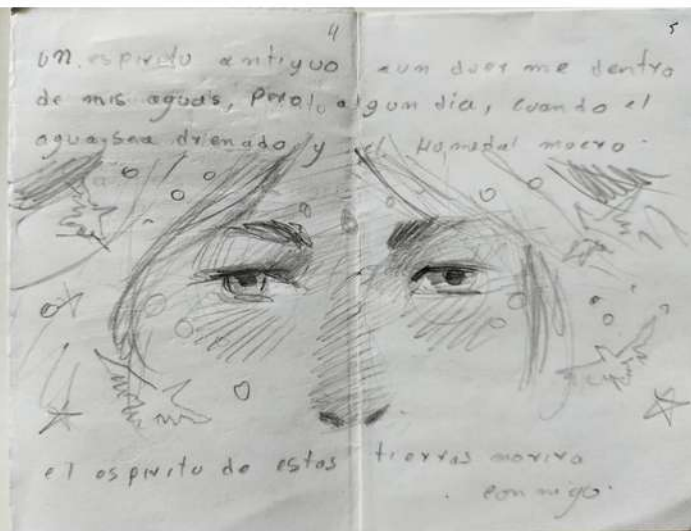 4
5
un espiritu antiguo aun duerme dentro
de mis aguas, Pero algun dia, cuando el
agua sea drienado y el Humedal muera.
el espiritu de estas tierras morira
conmigo.